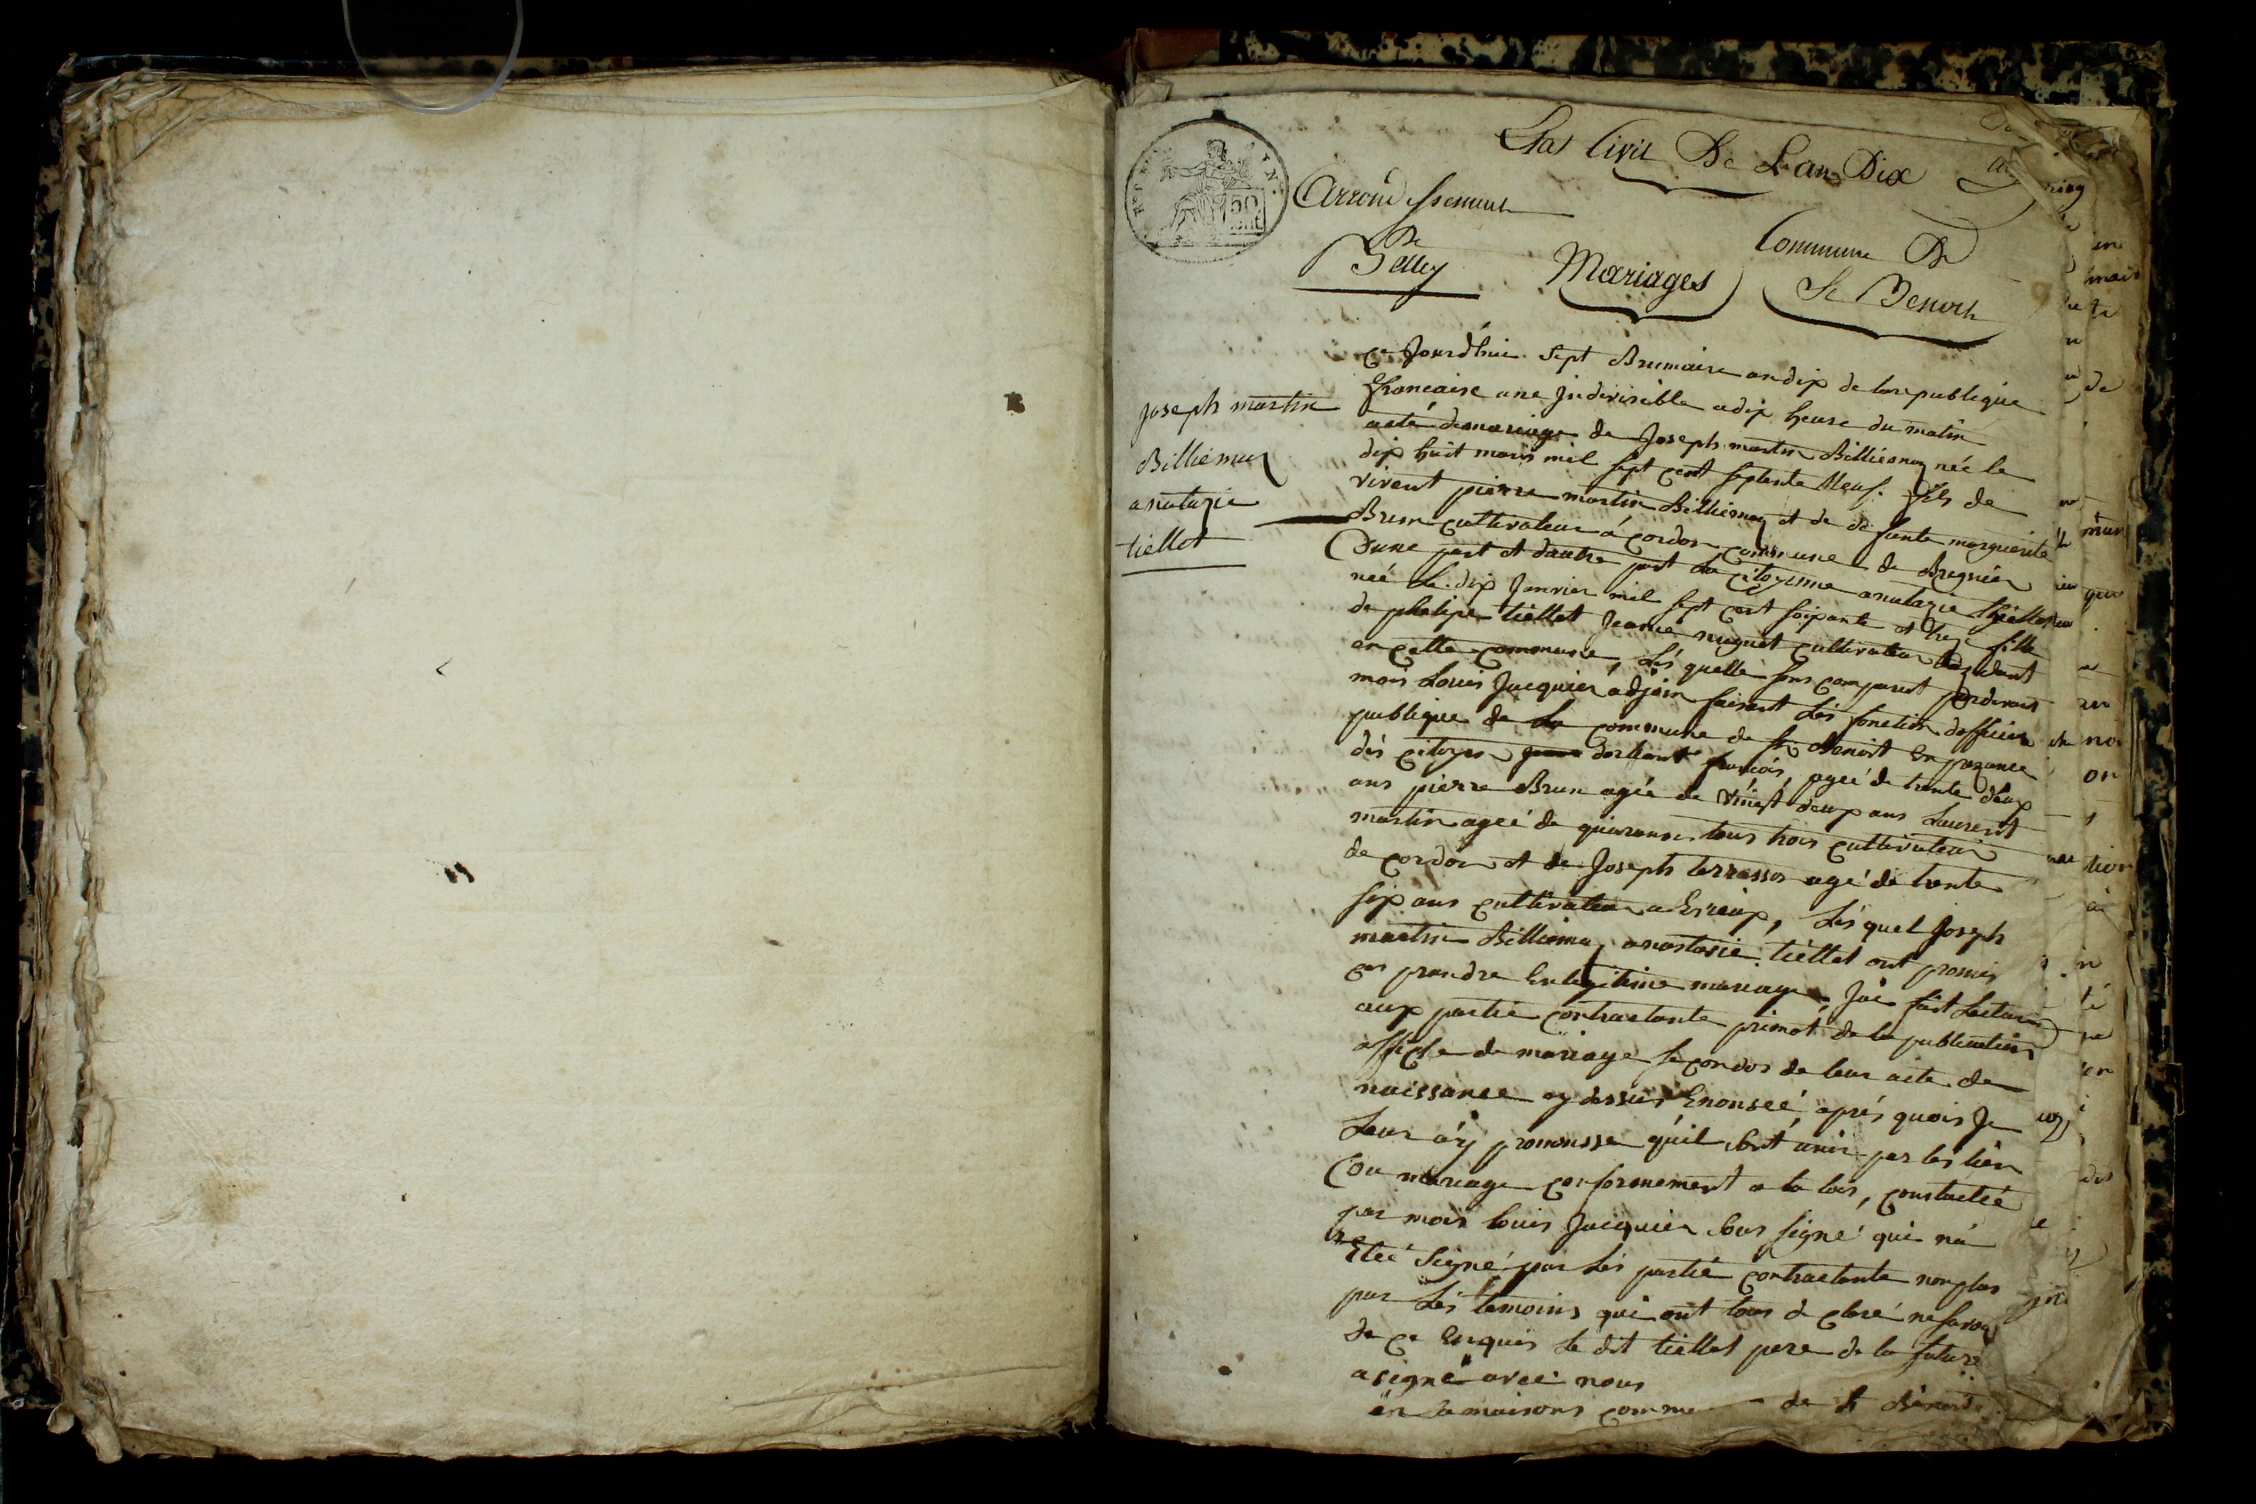 Etat Civil De L'an Dix
Arrondissement
De
Belley
Mariages
Commune De
St Benoit
50
joseph martin
Billiemaz
anatazie
tiellet
Ce Jourd'huie Sept Brumaire an dix de la republique
francaise une Jndivisible a dix heure du matin
acte de mariage de Joseph martin Billiemaz née le
dix huit mars mil sept cent septente Neuf. fils de
vivent pierre martin Billiemaz et de defunte marguerite
Brun cultivateur á Cordon commune de Bregnier
Dune part et dautre part la citoyenne anatazie thiellet
neé Le dix Janvier mil sept cent soixante et treze fille
de phelipe tiellet Jeanne nugnet cultivateur Rezidant
en cette commune, Lés quelle sons comparut pardevant
mois Louis Jacquier adjoin faisant Lés fonction dofficier
publique de La commune de St Benoit En prezance
dés citoyen francois ageé de trente deux
ans pierre Brun ageé de vinest deux ans Laurent
martin ageé de quaranse tous trois cultivateur
de cordon et de Joseph terrasson agé de trente
six ans cultivateur a Evieux, Lés quel Joseph
martin Billiemaz anastasie tiellet ont promis
ce prandre En legitime mariage, Jaé fait Lecture
aux partié contractante primot de la publication
affiche de mariage secondos de leur acte de
naissance cy dessus Enonseé, aprés quois Je
Leur áy prononsse quil sont unir par les lien
Cou mariage conformement a la lois, constacteé
par mois louis Jacquier sous signé qui ná
Eteé Signé par Lés partié contractante non plus
par Lés temoins qui ont tous de claré ne savoir
de ce Enquis Le dit tiellet pere de la future
a signé avec nous
én la maisons comme de St Benoit